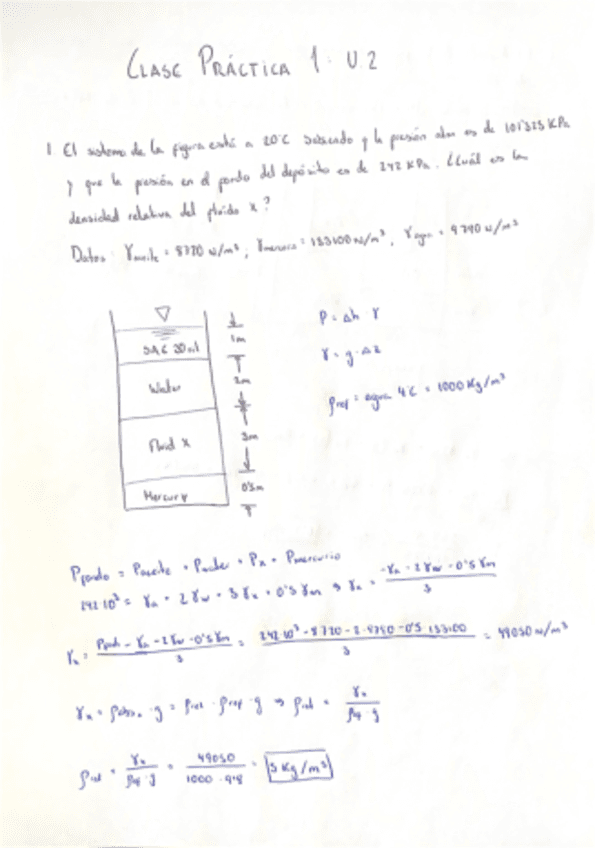 CLASE PRÁCTICA 1. U.2
1 El sistema de la figura está a 20°C sabiendo q la presión atm es de 101'325 KPa
y que la presión en el fondo del depósito es de 242 KPa. ¿Cuál es la
densidad relativa del fluido x?
Datos: γaceite = 8720 N/m³; γmercurio = 133100 N/m³, γagua = 9790 N/m³
SAE 30 oil
Water
Fluid X
Mercury
1m
2m
3m
0'5m
P = Δh · γ
γ = g · Δz
ρref = agua 4°C = 1000 Kg/m³
Pfondo = Paceite + Pwater + Px + Pmercurio
242·10³ = γa + 2γw + 3γx + 0'5γm ⇒ γx = -γa - 2γw - 0'5γm / 3
γx = Pfondo - γa - 2γw - 0'5γm / 3 = 242·10³ - 8720 - 2·9790 - 0'5·133100 / 3 = 49050 N/m³
γx = ρabs · g = ρrel · ρref · g ⇒ ρrel = γx / ρref · g
ρrel = γx / ρref · g = 49050 / 1000 · 9'8 = 5 Kg/m³